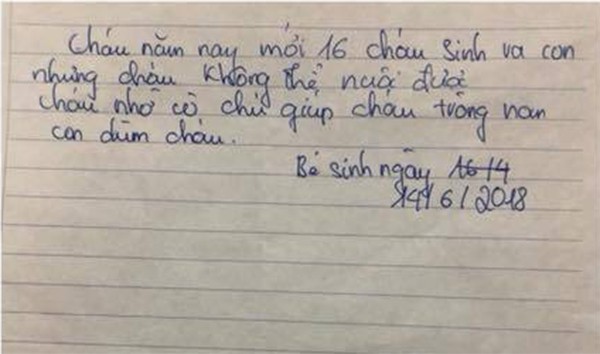 Cháu năm nay mới 16 cháu sinh va con
nhưng cháu không thể nuôi được
cháu nhờ cô chú giúp cháu trông nom
con dùm cháu.
Bé sinh ngày 16 14
14/6/2018